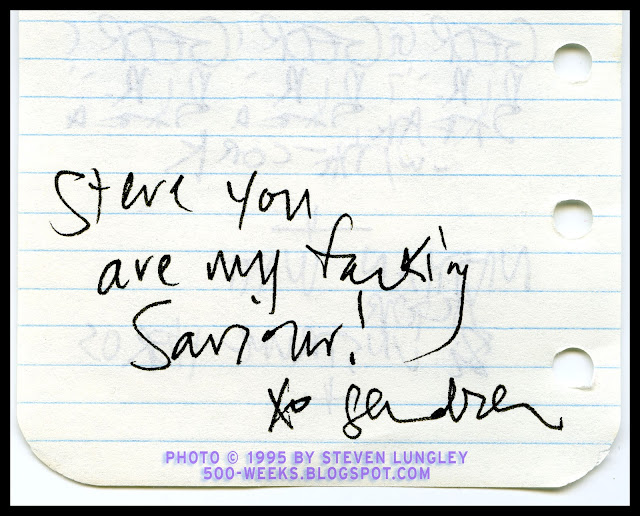 Steve you
are my fucking
Saviour!
xo
PHOTO © 1995 BY STEVEN LUNGLEY
500-WEEKS.BLOGSPOT.COM